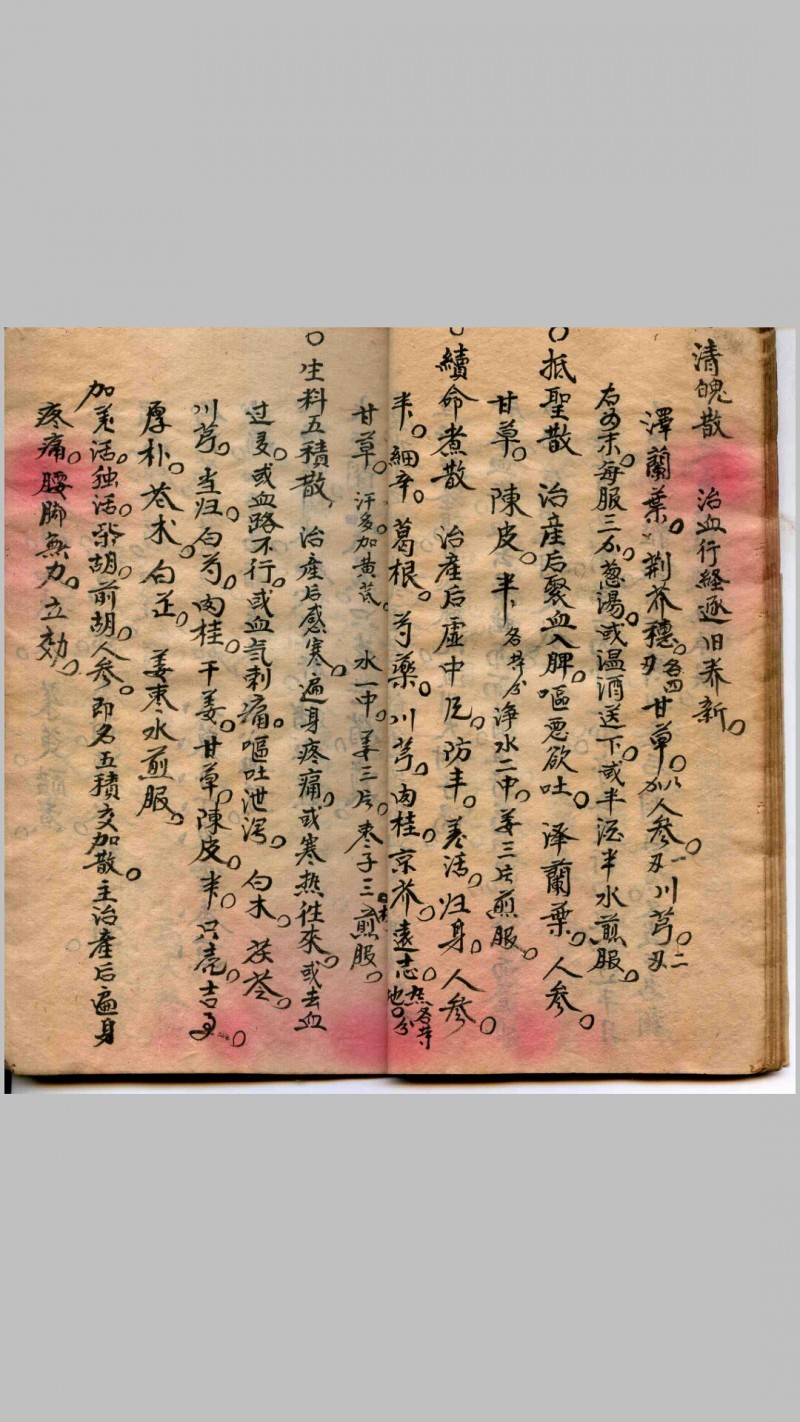 清魄散　治血行経逐旧养新。
澤蘭葉。荆芥穗。各四刄 甘草。人参。刄一 川芎。刄二
右为末。每服三分。葱湯。或温酒送下。或半酒半水煎服。
〇抵聖散　治産后聚血入脾。嘔悪欲吐。澤蘭葉。人参。
甘草。陳皮。半。各等分 浄水二中。姜三片煎服。
〇續命煮散　治產后虚中风。防丰。羌活。归身。人参。
半。細辛。葛根。芍薬。川芎。肉桂。京芥。遠志。熟地各等分
甘草。汗多加黄芪。水一中。姜三片。枣子三口煎服。
〇生料五積散　治產后感寒。遍身疼痛。或寒热往來。或去血
过多。或血路不行。或血气刺痛。嘔吐泄泻。白木。茯苓。
川芎。当归。白芍。肉桂。干姜。甘草。陳皮。半。只壳。吉
厚朴。苍术。白芷。姜枣水煎服。
加羌活。独活。柴胡。前胡。人参。即名五積交加散。主治產后遍身
疼痛。腰脚無力。立効。